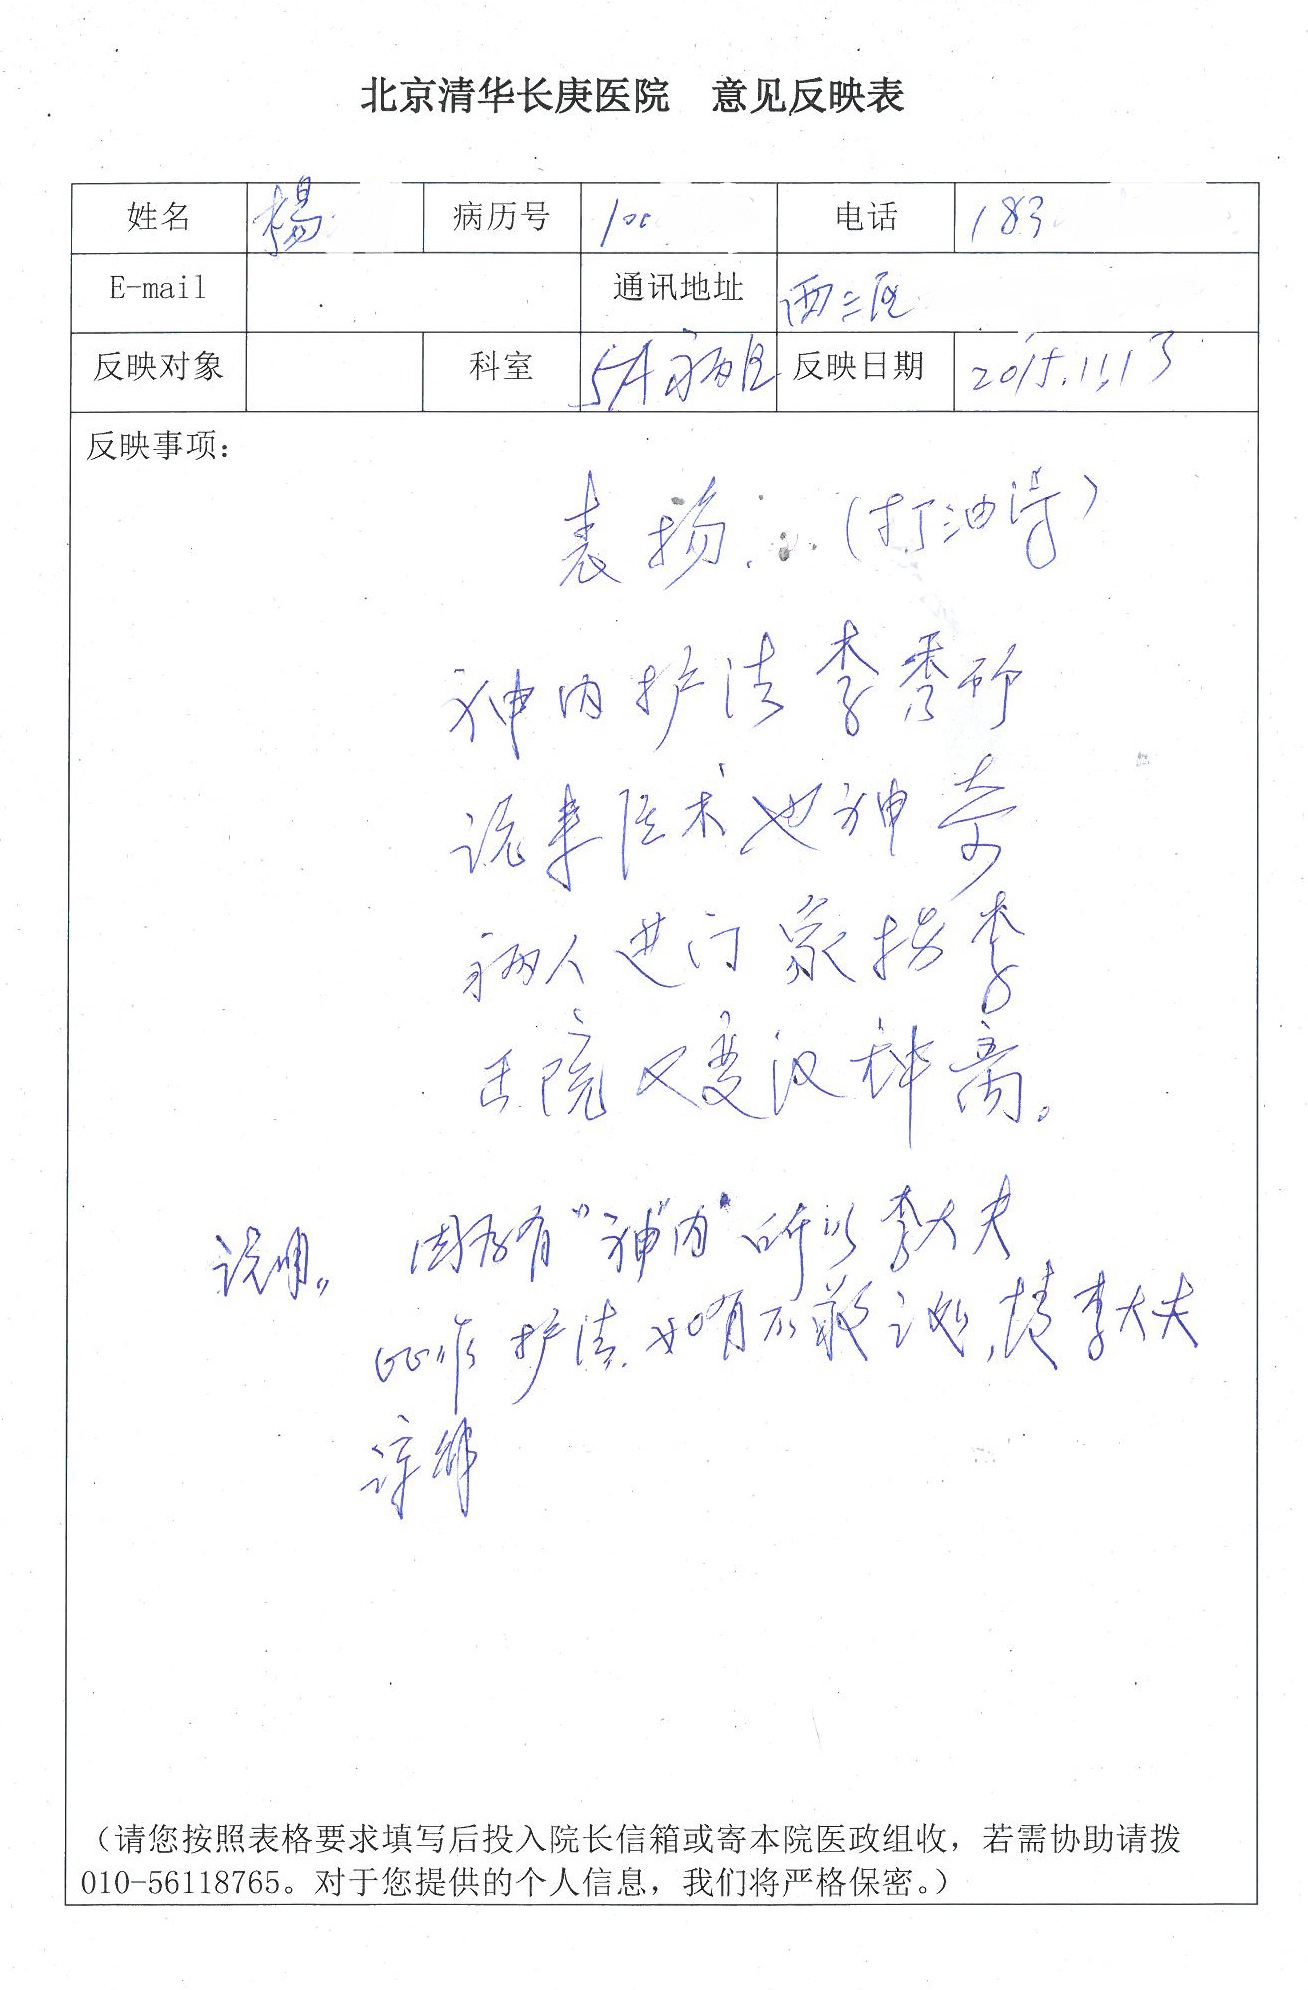 北京清华长庚医院 意见反映表
姓名 楊 病历号 100 电话 183
E-mail 通讯地址 西三区
反映对象 科室 5A病区 反映日期 2015.11.13
反映事项：
表扬.（打油诗）
神内护法李秀
说来医术也神奇
病人进门家拐李
出院又变汉钟离。
说明。 因有“神内”所以李大夫
比作护法.如有不敬之处,请李大夫
谅解
（请您按照表格要求填写后投入院长信箱或寄本院医政组收，若需协助请拨
010-56118765。对于您提供的个人信息，我们将严格保密。）